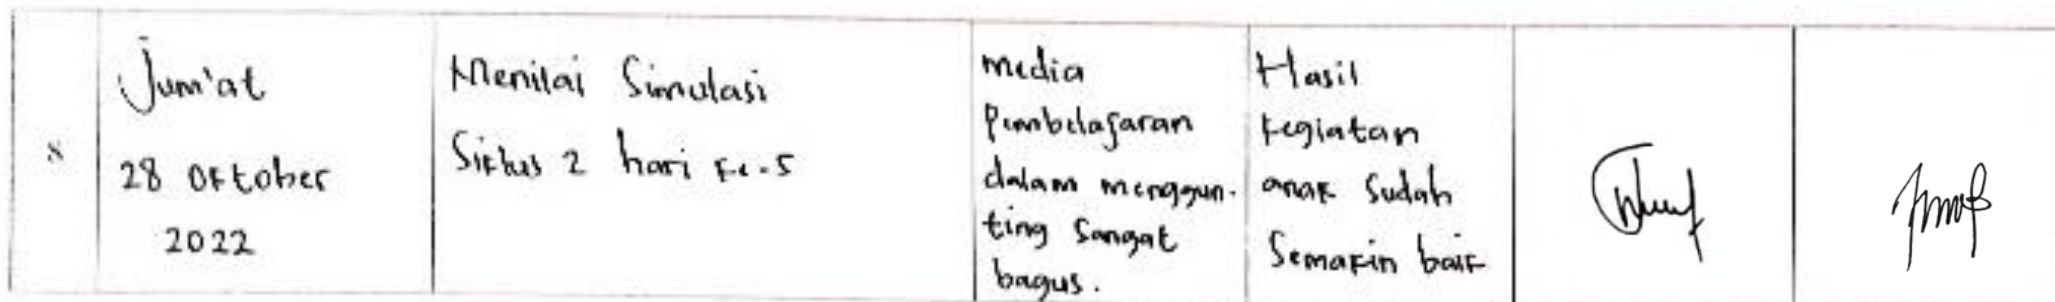 Jum'at
28 Oktober
2022
Menilai Simulasi
Siklus 2 hari ke-5
media
Pembelajaran
dalam menggun-
ting Sangat
bagus.
Hasil
kegiatan
anak Sudah
Semakin baik